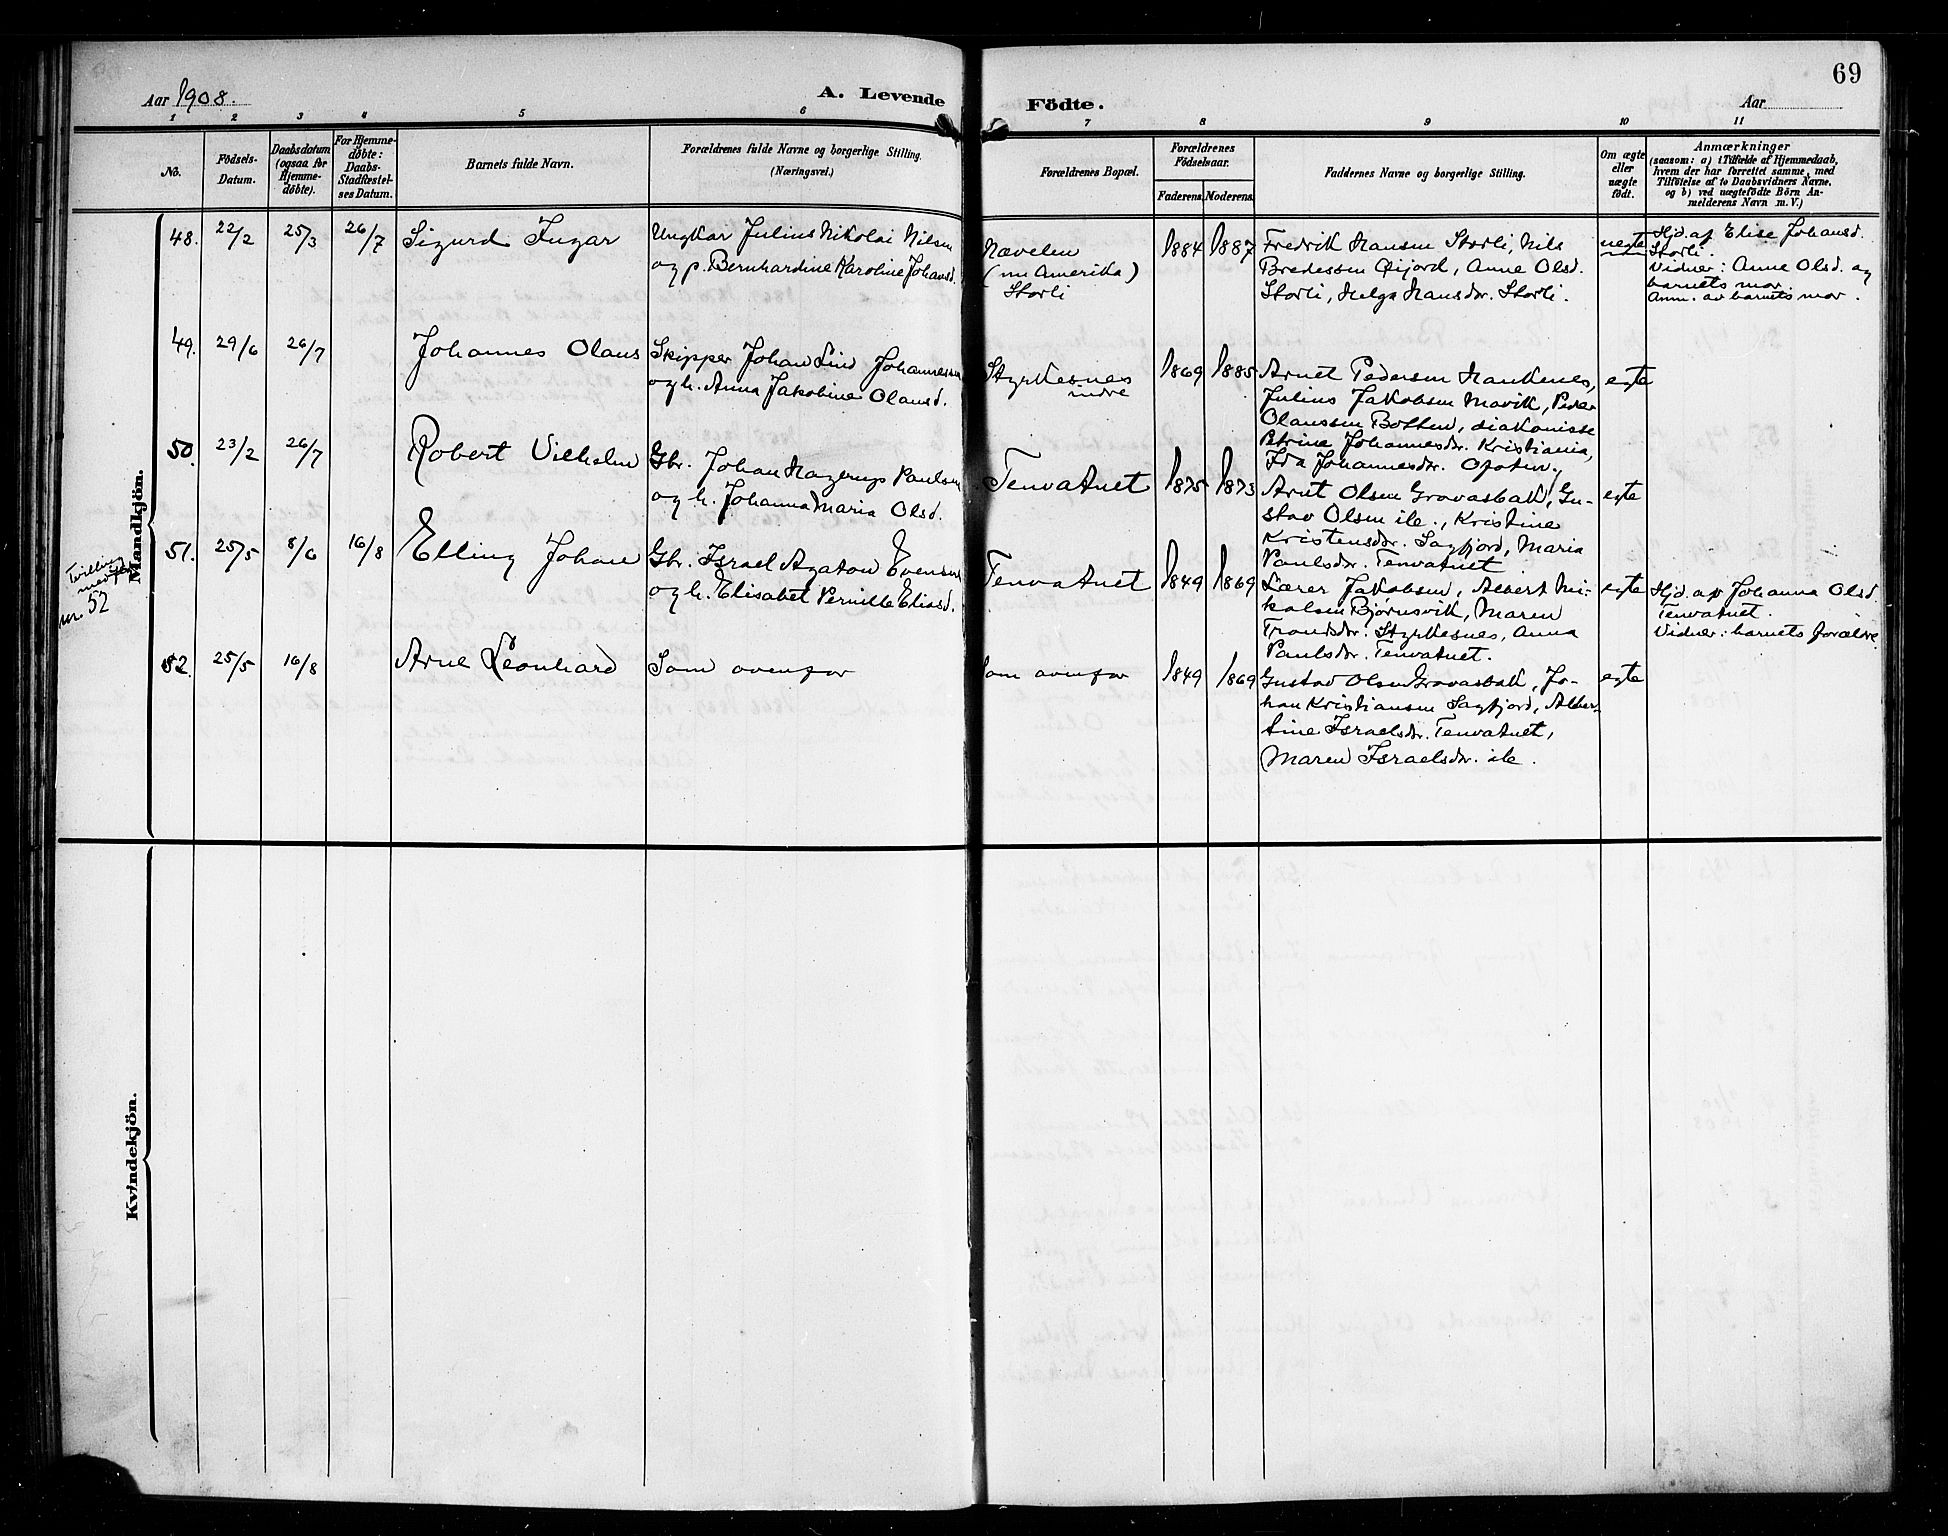 69
Aar 1908.
A. Levende Födte.
Aar
1 2 3 4 5 6 7 8 9 10 11
No.
Födsels-
Datum.
Daabsdatum
(ogsaa for
Hjemme-
döbte).
For Hjemme-
döbte:
Daabs-
Stadfæstel-
ses Datum.
Barnets fulde Navn.
Forældrenes fulde Navne og borgerlige Stilling.
(Næringsvei.)
Forældrenes Bopæl.
Forældrenes
Födselsaar.
Faderens. Moderens.
Faddernes Navne og borgerlige Stilling.
Om ægte
eller
uægte
födt.
Anmærkninger
(saasom: a) i Tilfælde af Hjemmedaab,
hvem der har forrettet samme, med
Tilföielse af to Daabsvidners Navne,
og b) ved uægtefödte Börn An-
melderens Navn m. V.)
Mandkjön.
48. 22/2 25/3 26/7 Sigurd Ingar
Ungkar Julius Nikolai Nilsen
og p. Bernhardine Karoline Johansd.
Nævelen
(nu Amerika)
Storli
1884 1887
Fredrik Hansen Storli, Nils
Bredessen Øijord, Anne Olsd.
Storli, Helga Hansdr. Storli.
uegte
Hjd. af Elise Johansd.
Storli.
Vidner: Anne Olsd. og
barnets mor.
Anm. av barnets mor.
49. 29/6 26/7 Johannes Olaus
Skipper Johan Lind Johannessen
og h. Anna Jakobine Olausd.
Styrkesnes
indre
1869 1885
Arnet Pedersen Haukenes,
Julius Jakobsen Movik, Peder
Olaussen Botten, diakonisse
Petrine Johannesdr. Kristiania,
Ida Johannesdr. Ofoten.
egte
50. 23/2 26/7 Robert Vilhelm
Gbr. Johan Hagerup Paulsen
og h. Johanna Maria Olsd.
Tenvatnet
1875 1873
Arnt Olsen Gravasbak, Gu-
stav Olsen ile., Kristine
Kristensdr. Sagfjord, Maria
Paulsdr. Tenvatnet
egte
Tvilling
med
nr. 52
51. 25/5 8/6 16/8 Elling Johan
Gbr. Israel Agaton Evensen
og h. Elisabet Pernille Eliasd.
Tenvatnet
1849 1869
Lærer Jakobsen, Albert Ni-
kolsen Bjørnsvik, Maren
Trondsdr. Styrkesnes, Anna
Paulsdr. Tenvatnet.
egte
Hjd. af Johanna Olsd.
Tenvatnet.
Vidner: barnets forældre
52. 25/5 16/8 Arne Leonhard
Som ovenfor
Som ovenfor
1849 1869
Gustav Olsen Gravasbak, Jo-
han Kristiansen Sagfjord, Alber-
tine Israelsdr. Tenvatnet,
Maren Israelsdr. ile.
egte
Kvindekjön.